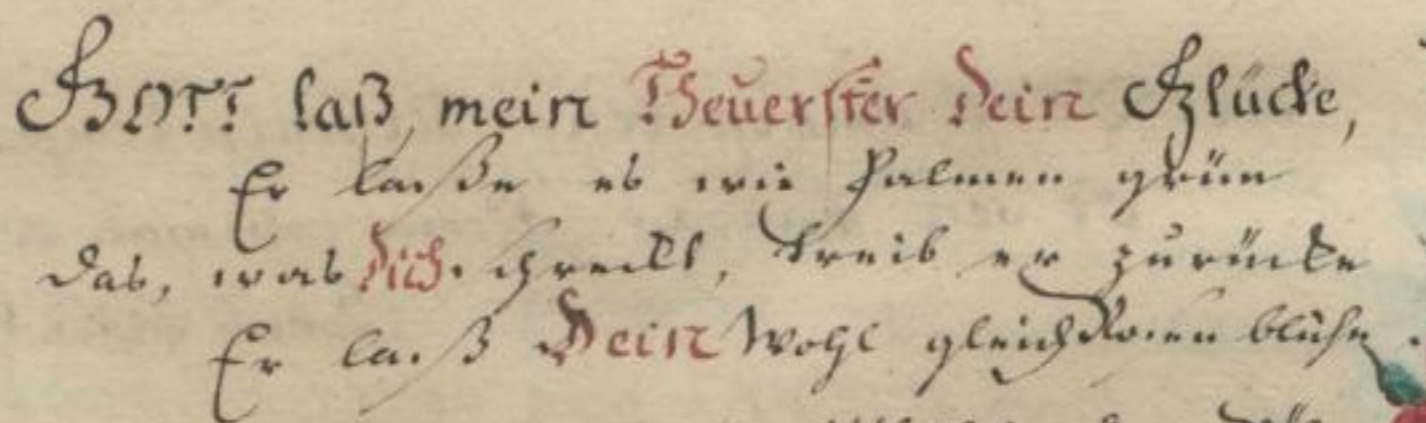 GOTT laß, mein Theuerster Dein Glücke,
Er laße es wie Palmen grün
das, was Dich schreckt, treib er zurücke
Er laß Dein Wohl gleich Rosen blühn.